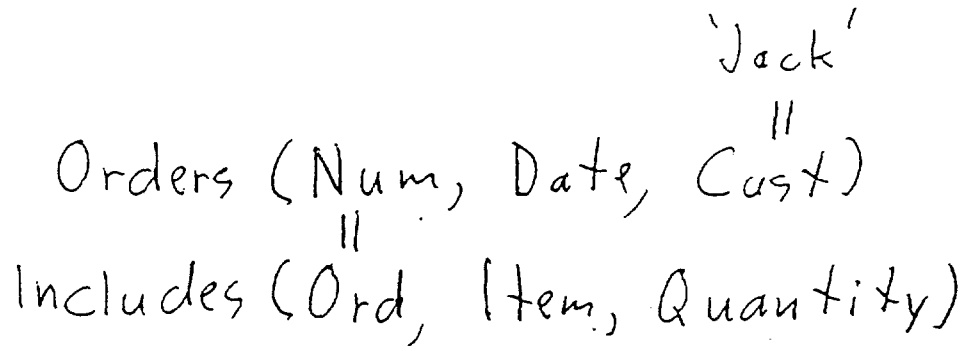 'Jack'
||
Orders (Num, Date, Cust)
||
Includes (Ord, Item, Quantity)